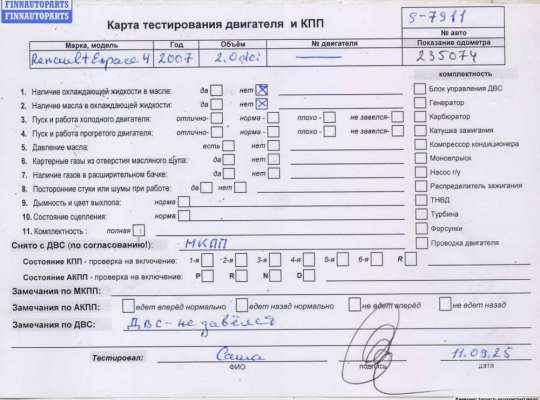 FINNAUTOPARTS
FINNAUTOPARTS
Карта тестирования двигателя и КПП
S-7911
№ авто
Марка, модель Год Объём № двигателя Показание одометра
Renault Espace 4 2007 2.0 dci 235074
комплектность
1. Наличие охлаждающей жидкости в масле: да нет
Блок управления ДВС
2. Наличие масла в охлаждающей жидкости: да нет
Генератор
3. Пуск и работа холодного двигателя: отлично- норма - плохо - не завелся-
Карбюратор
4. Пуск и работа прогретого двигателя: отлично- норма - плохо - не завелся-
Катушка зажигания
5. Давление масла: есть нет
Компрессор кондиционера
6. Картерные газы из отверстия масляного щупа: да нет
Моновпрыск
7. Наличие газов в расширительном бачке: да нет
Насос г/у
8. Посторонние стуки или шумы при работе: да нет
Распределитель зажигания
9. Дымность и цвет выхлопа: норма
ТНВД
10. Состояние сцепления: норма
Турбина
11. Комплектность : полная
Форсунки
Снято с ДВС (по согласованию!): МКПП
Проводка двигателя
Состояние КПП - проверка на включение: 1-я 2-я 3-я 4-я 5-я 6-я R
Состояние АКПП - проверка на включение: P R N D
Замечания по МКПП:
Замечания по АКПП: едет вперёд нормально едет назад нормально не едет вперёд не едет назад
Замечания по ДВС: ДВС - не завёлся
Тестировал: Саша 11.09.25
ФИО подпись дата